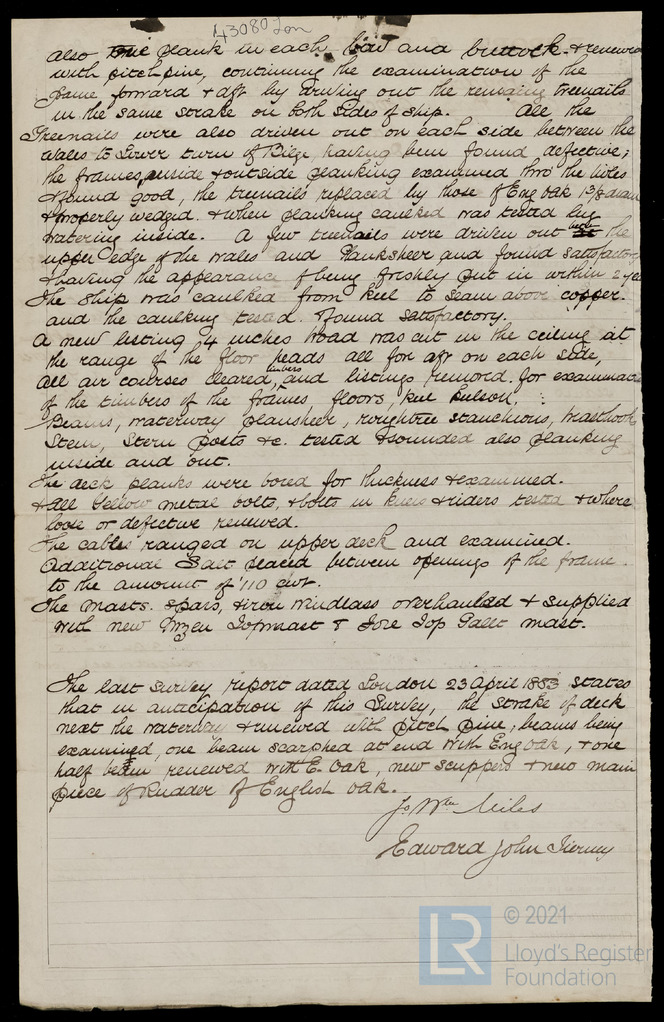 43080 Lon
also one plank in each bow and buttock & renewed
with pitch pine, continuing the examination of the
same forward & aft by driving out the remaing treenails
in the same strake on both sides of ship. All the
Treenails were also driven out on each side between the
wales to Lower turn of Bilge having been found defective;
the frames, inside & outside planking examined thro the holes
& found good, the treenails replaced by those of Eng oak 1 3/8 diam
& properly wedged. & when planking caulked was tested by
watering inside. A few treenails were driven out the
upper edge of the wales and Planksheer and found satisfactory
& having the appearance of being freshly put in within 2
The ship was caulked from keel to seam above copper.
and the caulking tested & found satisfactory.
A new listing 4 inches broad was cut in the ceiling at
the range of the floor heads all for aft on each side,
All air courses cleared, and listings removed for examination
timbers
of the timbers of the frames floors, keel kelson,
Beams, waterway plansheer, roughtree stanchions, breasthook
Stem, Stern posts &c. tested & sounded also planking
inside and out.
The deck planks were bored for thickness & examined.
& all Yellow metal bolts, & bolts in knees & riders tested & where
loose or defective renewed.
The cables ranged on upper deck and examined.
Additional Salt placed between openings of the frame
to the amount of 110 cwt.
The masts. spars, & iron windlass overhauled & supplied
with new Mizen Topmast & Fore Top Gallt mast.
The last survey report dated London 23 April 1883 states
that in anticipation of this Survey, the strake of deck
next the waterway & renewed with pitch pine, beams being
examined, one beam scarphed at end with Eng Oak, & one
half beam renewed with E. Oak, new scuppers & new main
piece of Rudder of English oak.
Js Wm Miles
Edward John Tierney
LR
© 2021
Lloyd's Register
Foundation